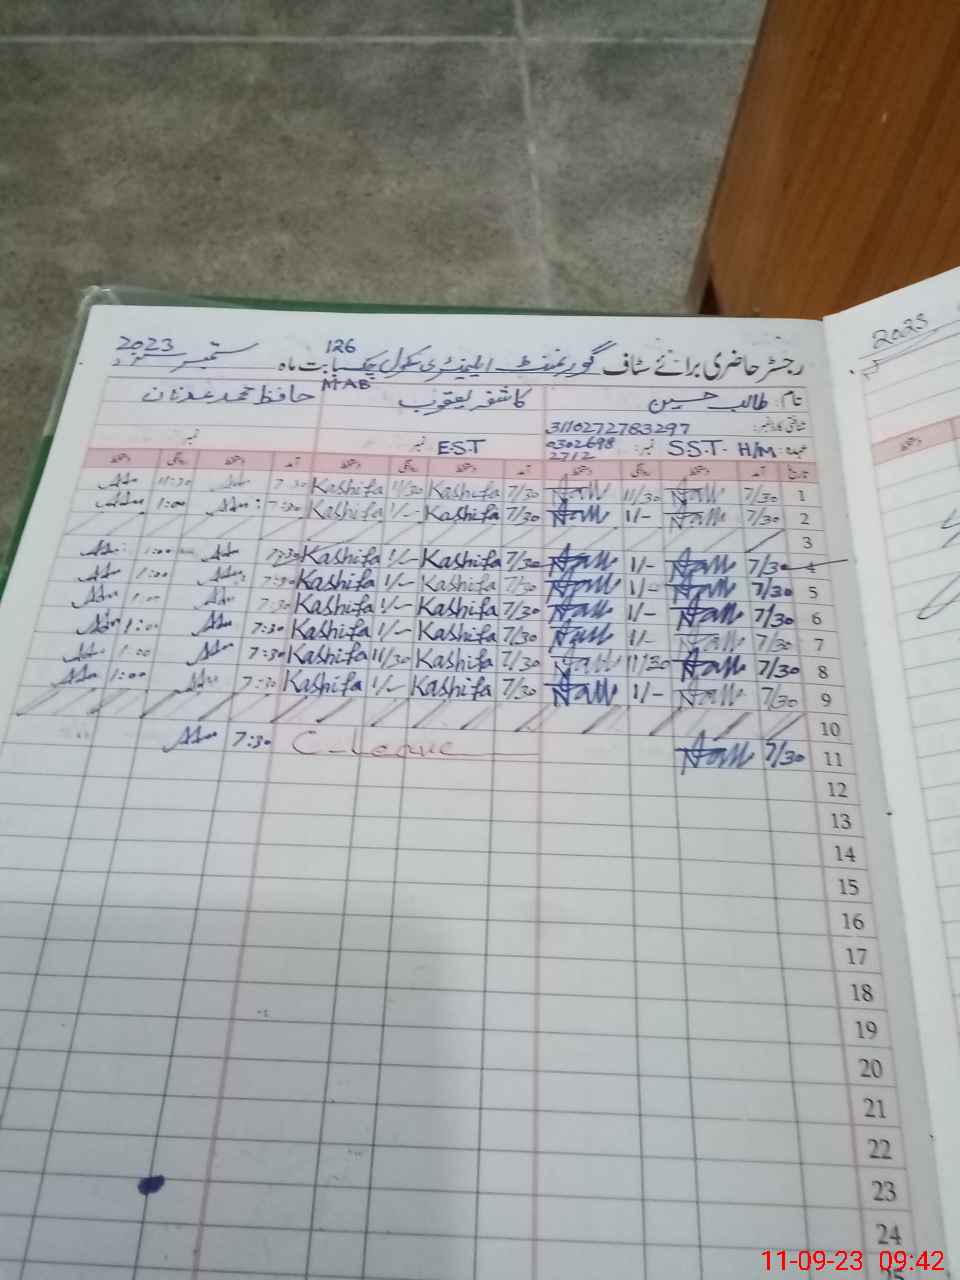 رجسٹر حاضری برائے سٹاف گورنمنٹ ایلیمنٹری سکول چک 126 M.AB بابت ماہ ستمبر 2023
2023
نام: طالب حسین کاشفہ یعقوب حافظ محمد عدنان
3110272783297
S.S.T. H/M نمبر: 0302698 2712 E.S.T نمبر نمبر
1 7/30 11/30 7/30 Kashifa 11/30 Kashifa 7:30 11:30
2 7/30 1/- 7/30 Kashifa 1/- Kashifa 7:30 1:00
3
4 7/30 1/- 7/30 Kashifa 1/- Kashifa 7:30 1:00
5 7/30 1/- 7/30 Kashifa 1/- Kashifa 7:30 1:00
6 7/30 1/- 7/30 Kashifa 1/- Kashifa 7:30 1:00
7 7/30 1/- 7/30 Kashifa 1/- Kashifa 7:30 1:00
8 7/30 11/30 7/30 Kashifa 11/30 Kashifa 7:30 1:00
9 7/30 1/- 7/30 Kashifa 1/- Kashifa 7:30 1:00
10
11 7/30 C-Leave 7:30
12
13
14
15
16
17
18
19
20
21
22
23
24
11-09-23 09:42